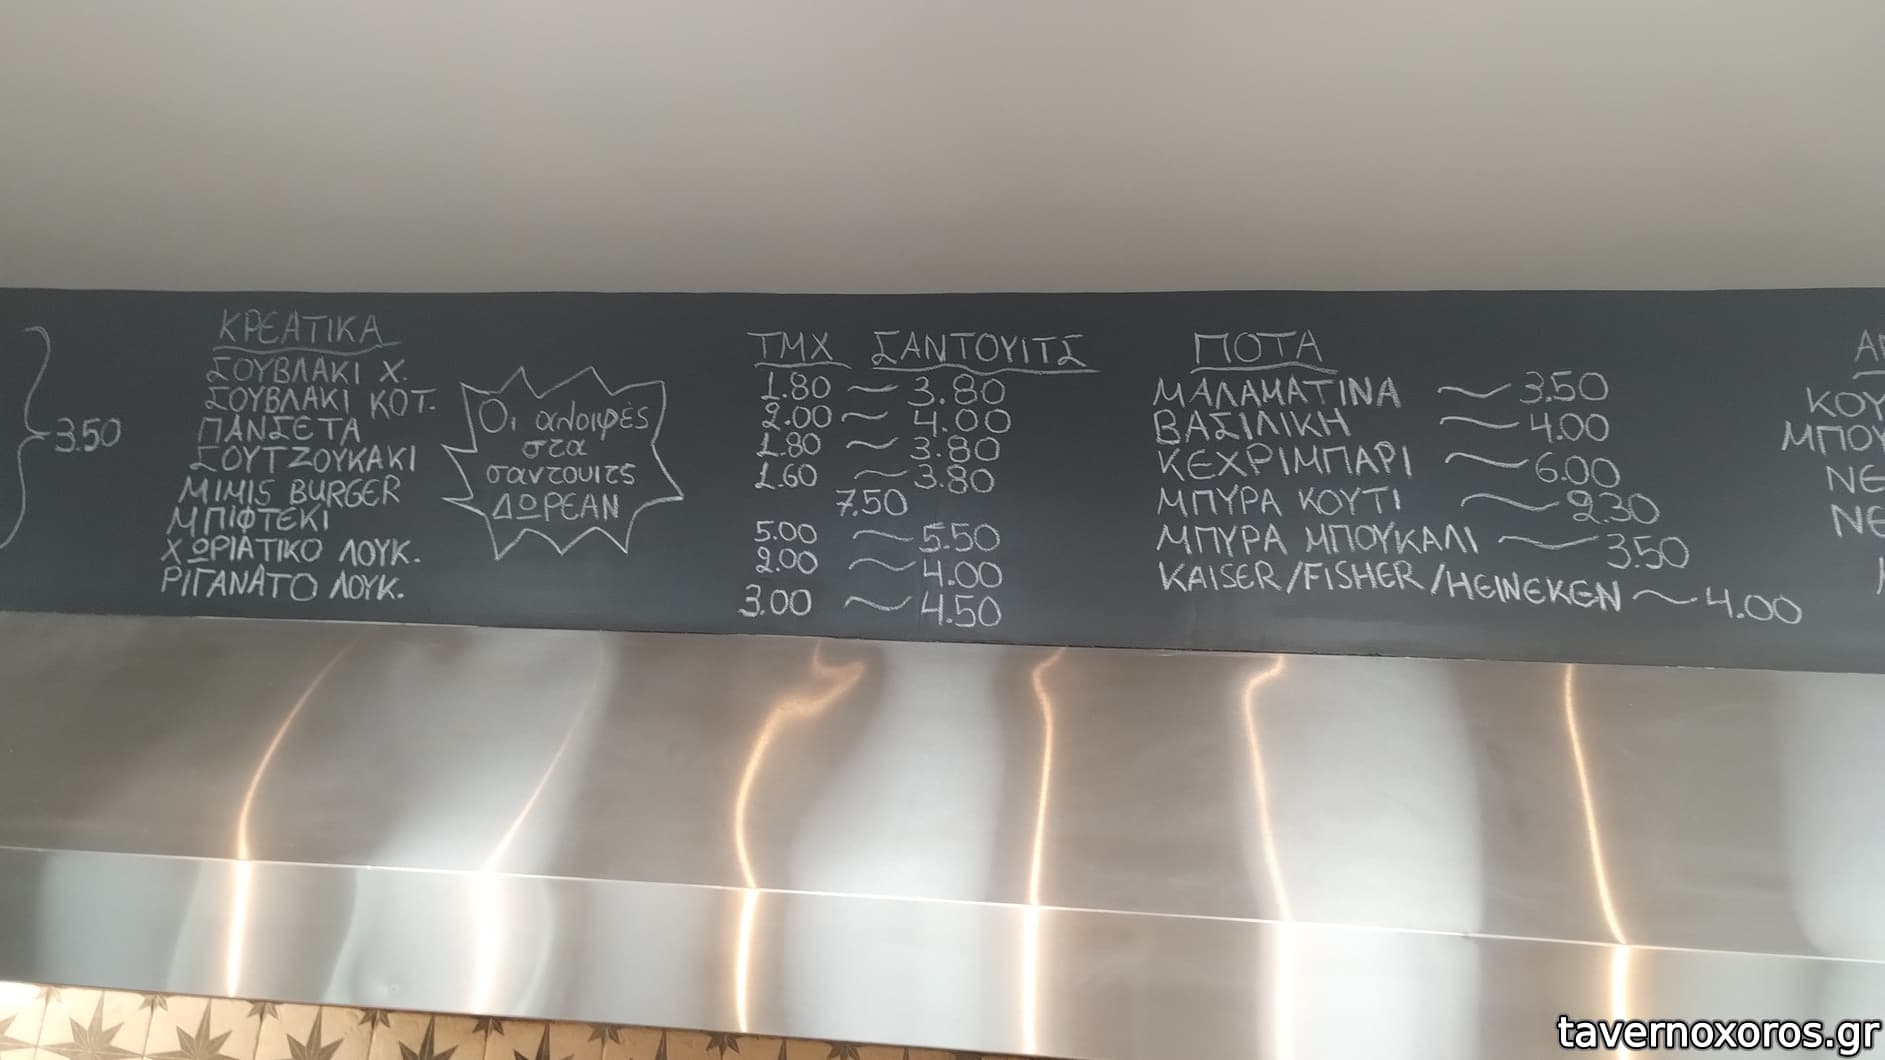 3.50
ΚΡΕΑΤΙΚΑ
ΣΟΥΒΛΑΚΙ Χ.
ΣΟΥΒΛΑΚΙ ΚΟΤ.
ΠΑΝΣΕΤΑ
ΣΟΥΤΖΟΥΚΑΚΙ
MIMIS BURGER
ΜΠΙΦΤΕΚΙ
ΧΩΡΙΑΤΙΚΟ ΛΟΥΚ.
ΡΙΓΑΝΑΤΟ ΛΟΥΚ.
Οι αλοιφές
στα
σαντουιτς
ΔΩΡΕΑΝ
ΤΜΧ ΣΑΝΤΟΥΙΤΣ
1.80 ~ 3.80
2.00 ~ 4.00
1.80 ~ 3.80
1.60 ~ 3.80
7.50
5.00 ~ 5.50
2.00 ~ 4.00
3.00 ~ 4.50
ΠΟΤΑ
ΜΑΛΑΜΑΤΙΝΑ ~ 3.50
ΒΑΣΙΛΙΚΗ ~ 4.00
ΚΕΧΡΙΜΠΑΡΙ ~ 6.00
ΜΠΥΡΑ ΚΟΥΤΙ ~ 2.30
ΜΠΥΡΑ ΜΠΟΥΚΑΛΙ ~ 3.50
KAISER/FISHER/HEINEKEN ~ 4.00
ΚΟΥ
ΜΠΟΥ
ΝΕ
ΝΕ
tavernoxoros.gr